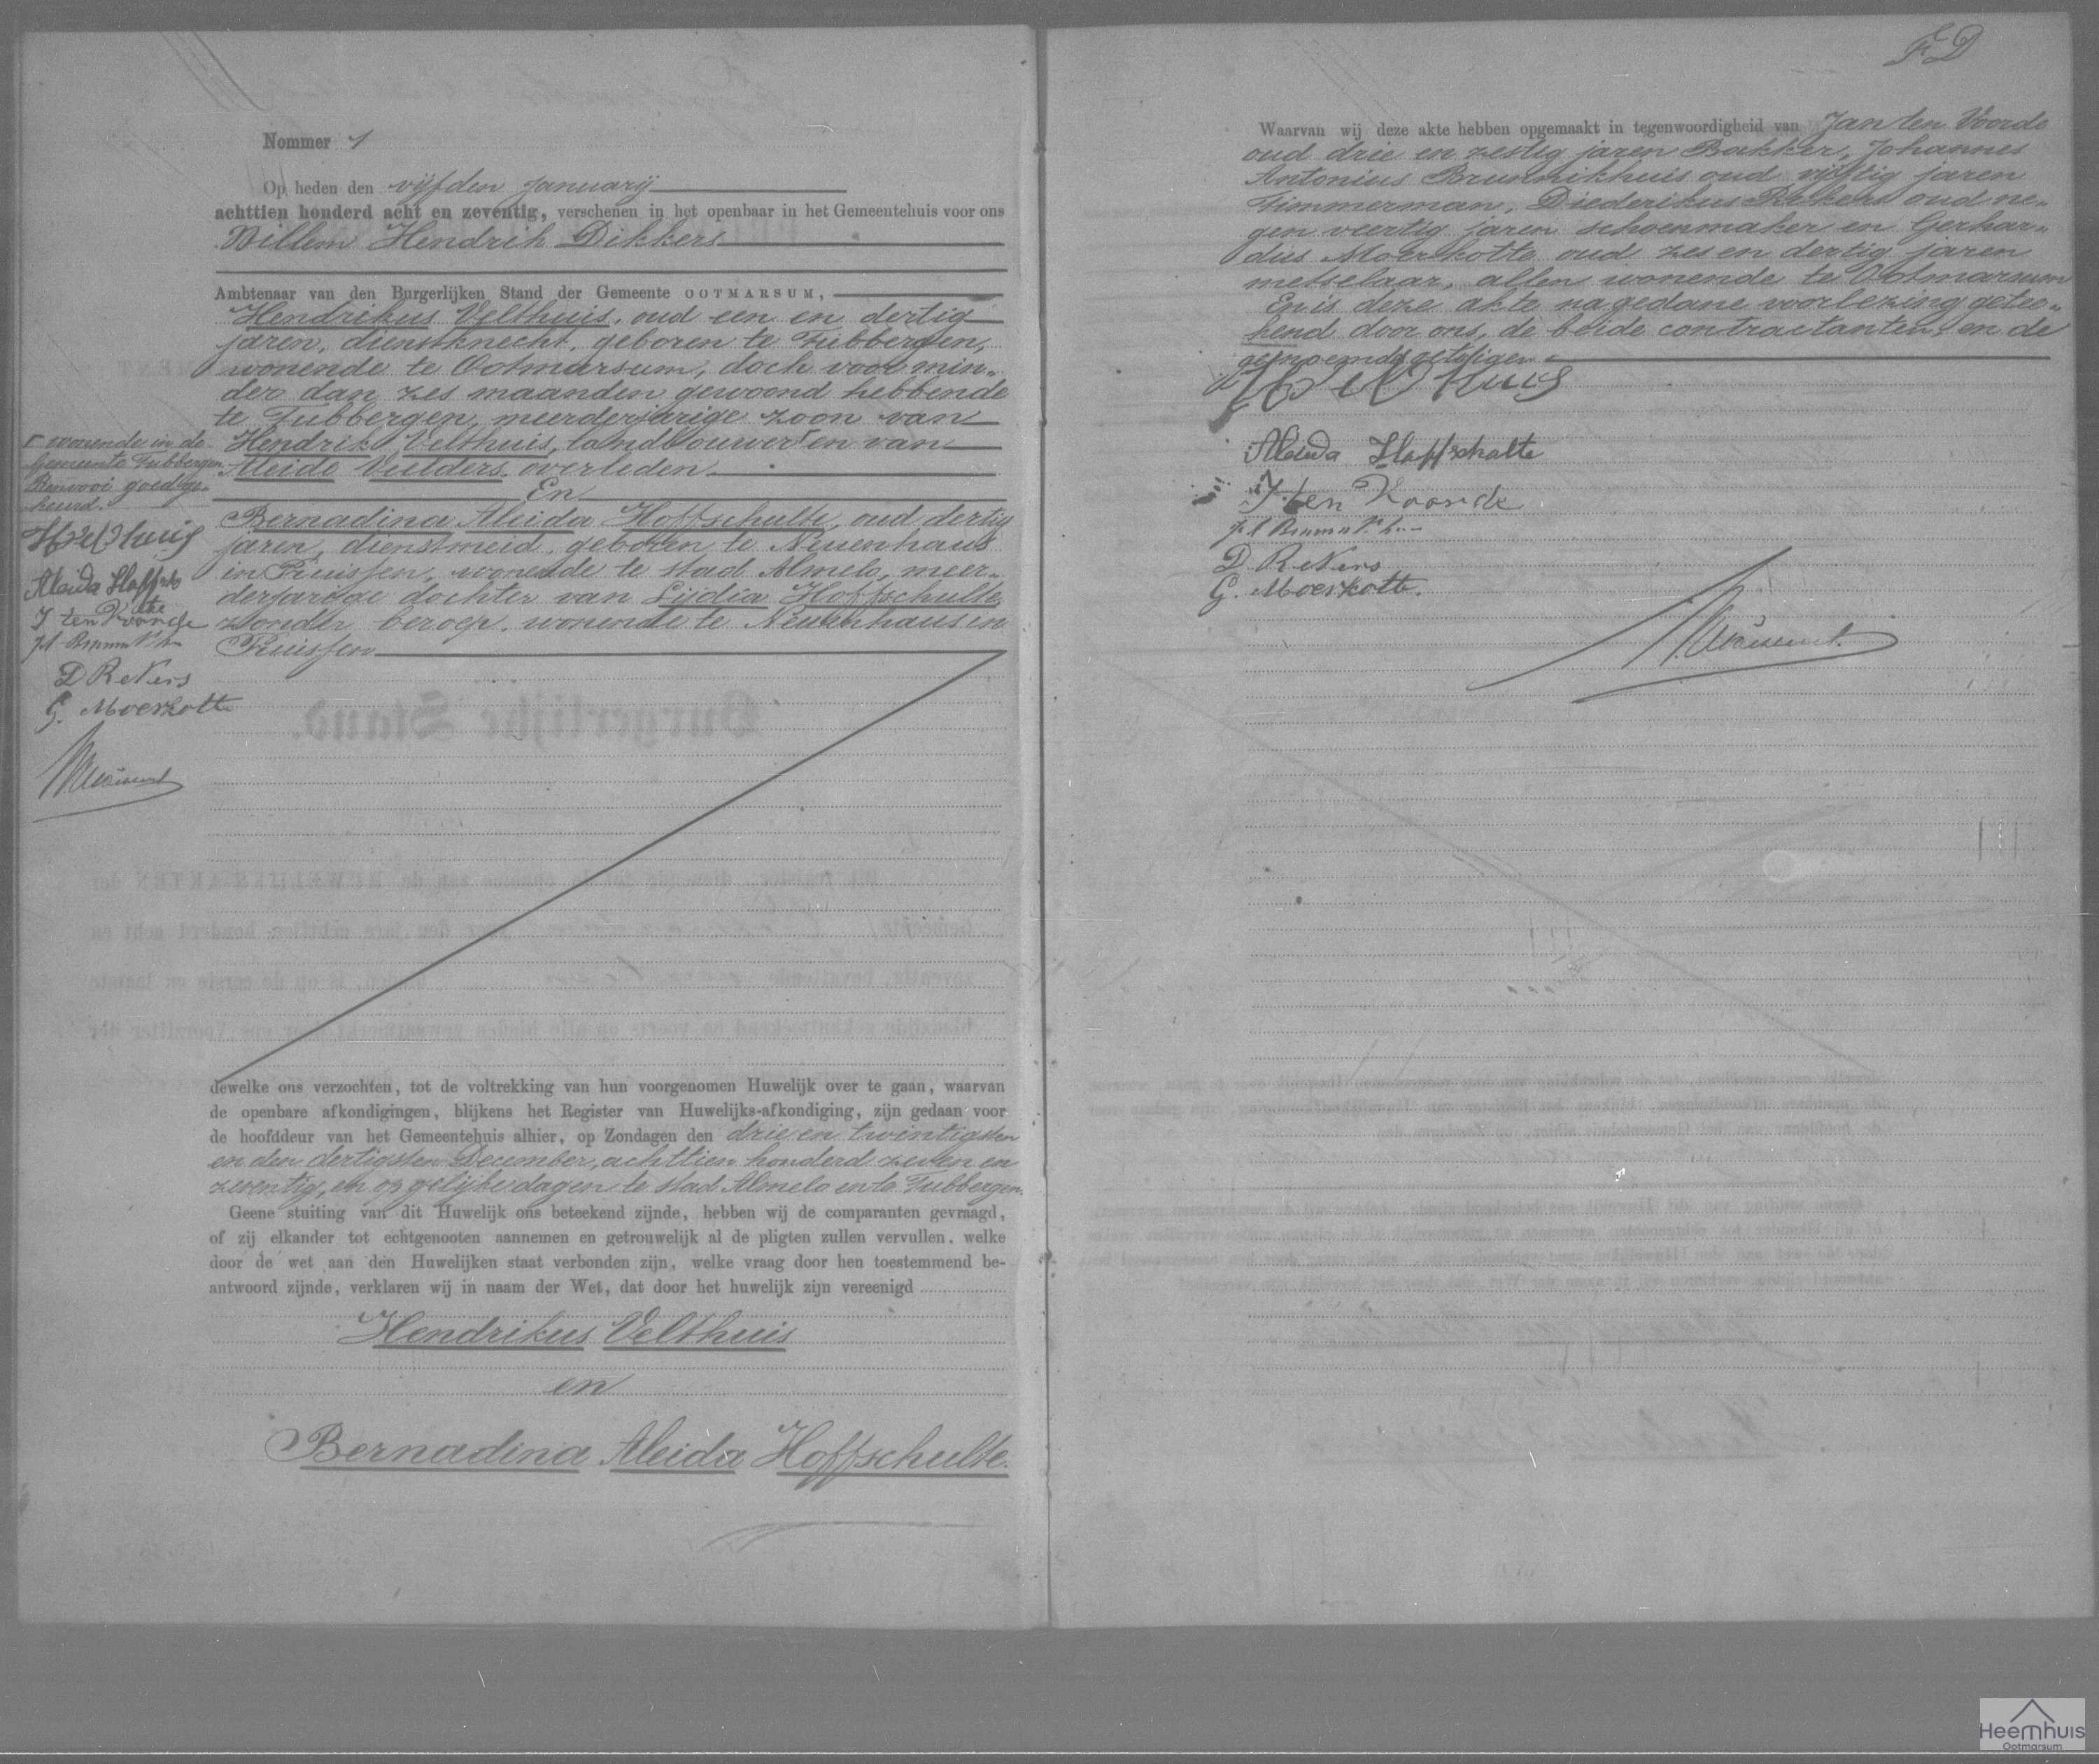 Nommer 1
Op heden den vijfden Januarij
achttien honderd acht en zeventig, verschenen in het openbaar in het Gemeentehuis voor ons
Willem Hendrik Dikkers
Ambtenaar van den Burgerlijken Stand der Gemeente OOTMARSUM,
Hendrikus Velthuis, oud een en dertig
jaren, dienstknecht, geboren te Tubbergen,
wonende te Ootmarsum, doch voor min„
der dan zes maanden gewoond hebbende
te Tubbergen, meerderjarige zoon van
Hendrik Velthuis, landbouwer en van
Aleida Vulders, overleden.
En
Bernadina Aleida Hoffschulte, oud dertig
jaren, dienstmeid, geboren te Neuenhaus
in Pruissen, wonende te stad Almelo, meer„
derjarige dochter van Lidia Hoffschulte,
zonder beroep, wonende te Neuenhaus in
Pruissen
wonende in de
Gemeente Tubbergen
Renvooi goedge„
keurd.
H Velthuis
Aleida Hoffschulte
J ten Voorde
D Rekers
G. Moerkotte
dewelke ons verzochten, tot de voltrekking van hun voorgenomen Huwelijk over te gaan, waarvan
de openbare afkondigingen, blijkens het Register van Huwelijks-afkondiging, zijn gedaan voor
de hoofddeur van het Gemeentehuis alhier, op Zondagen den drie en twintigsten
en den dertigsten December, achttien honderd zeven en
zeventig, en op gelijke dagen te stad Almelo en te Tubbergen.
Geene stuiting van dit Huwelijk ons beteekend zijnde, hebben wij de comparanten gevraagd,
of zij elkander tot echtgenooten aannemen en getrouwelijk al de pligten zullen vervullen, welke
door de wet aan den Huwelijken staat verbonden zijn, welke vraag door hen toestemmend be-
antwoord zijnde, verklaren wij in naam der Wet, dat door het huwelijk zijn vereenigd
Hendrikus Velthuis
en
Bernadina Aleida Hoffschulte.
FD
Waarvan wij deze akte hebben opgemaakt in tegenwoordigheid van Jan ten Voorde
oud drie en zestig jaren Bakker, Johannes
Antonius Brunnikhuis oud vijftig jaren
Timmerman, Diederikus Rekers oud ne„
gen veertig jaren schoenmaker en Gerhar„
dus Moerkotte oud zes en dertig jaren
metselaar, allen wonende te Ootmarsum
En is deze akte na gedane voorlezing getee„
kend door ons, de beide contractanten, en de
genoemde getuigen
H Velthuis
Aleida Hoffschulte
J. ten Voorde
D Rekers
G. Moerkotte.
Heemhuis
Ootmarsum